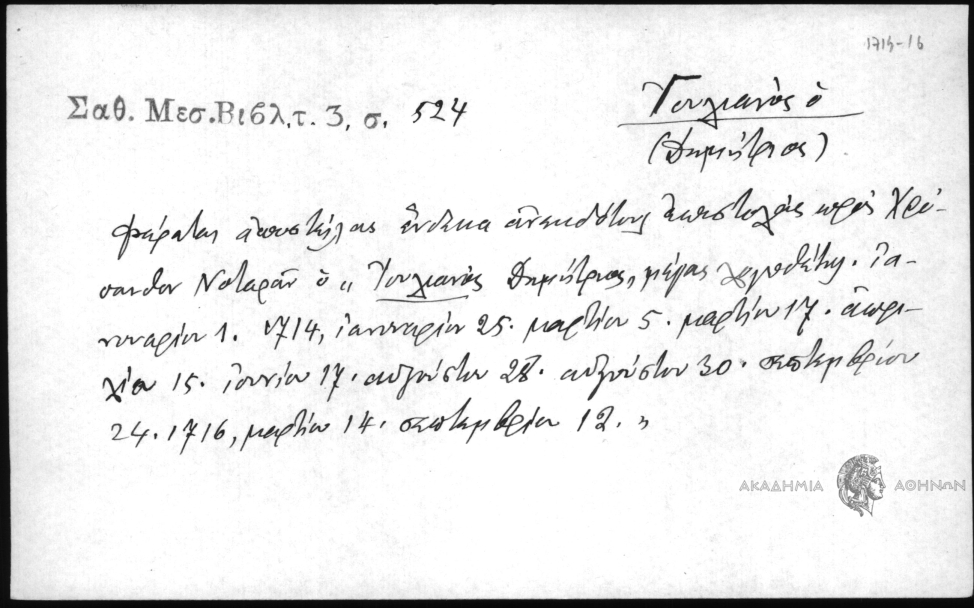 1714-16
Σαθ. Μεσ. Βιβλ, τ. 3, σ. 524
Ἰουλιανὸς ὁ
(Δημήτριος)
φέρεται ἀποστείλας ἕνδεκα ἀνεκδότους ἐπιστολὰς πρὸς Χρύ-
σανθον Νοταρᾶν ὁ „ Ἰουλιανὸς Δημήτριος, μέγας λογοθέτης. ἰα-
νουαρίου 1. 1714, ἰανουαρίου 25. μαρτίου 5. μαρτίου 17. ἀπρι-
λίου 15. ἰουνίου 17. αὐγούστου 28. αὐγούστου 30. σεπτεμβρίου
24. 1716, μαρτίου 14. σεπτεμβρίου 12. „
ΑΚΑΔΗΜΙΑ ΑΘΗΝΩΝ